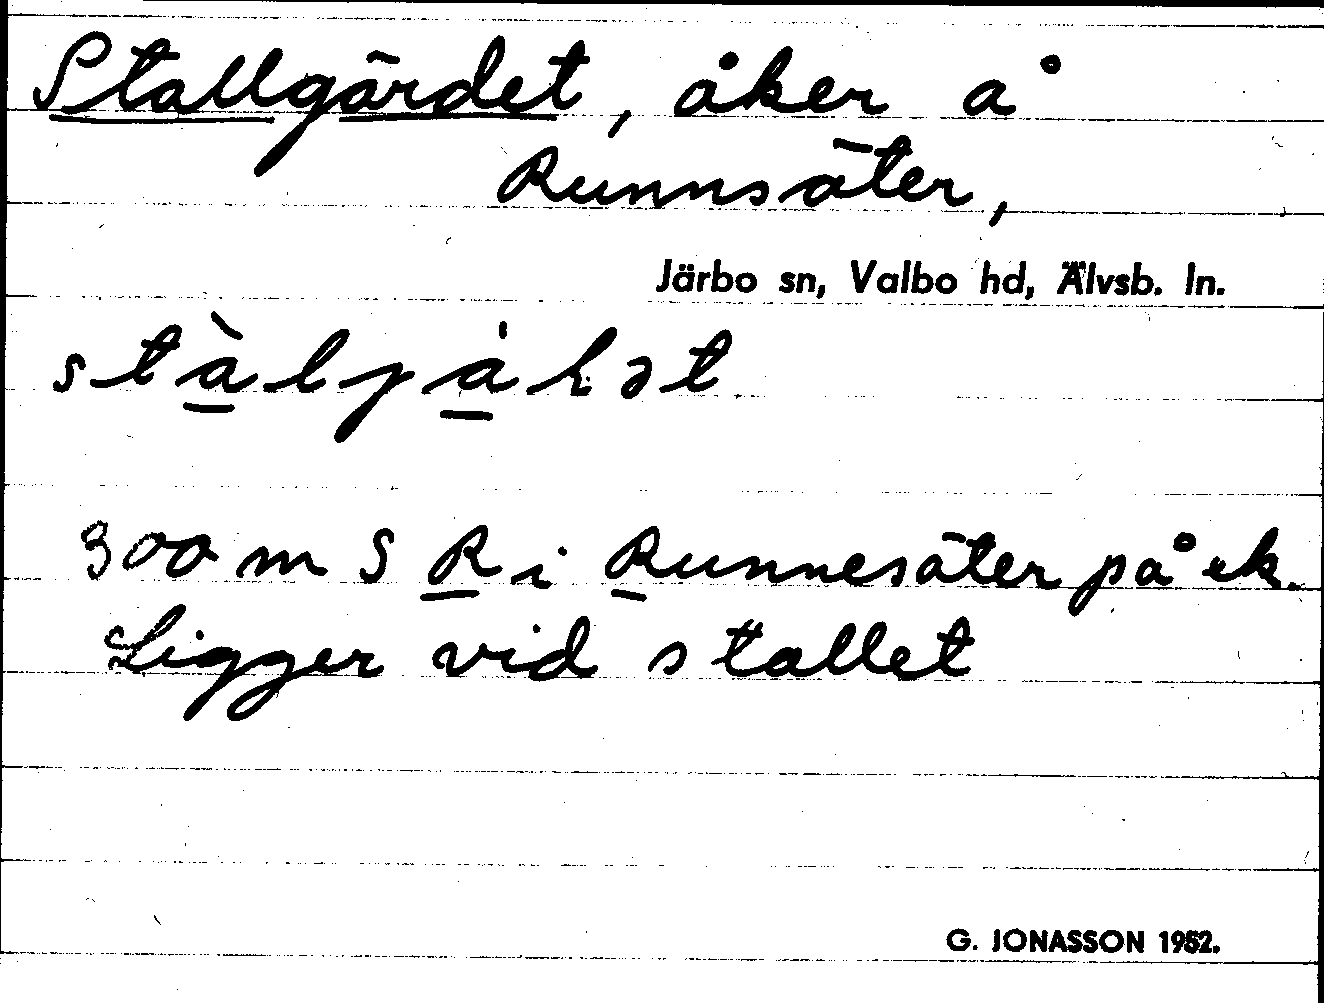 Stallgärdet, åker å
Runnsäter,
Järbo sn, Valbo hd, Älvsb. ln.
300 m S R i Runnesäter på ek.
Ligger vid stallet
G. JONASSON 1952.